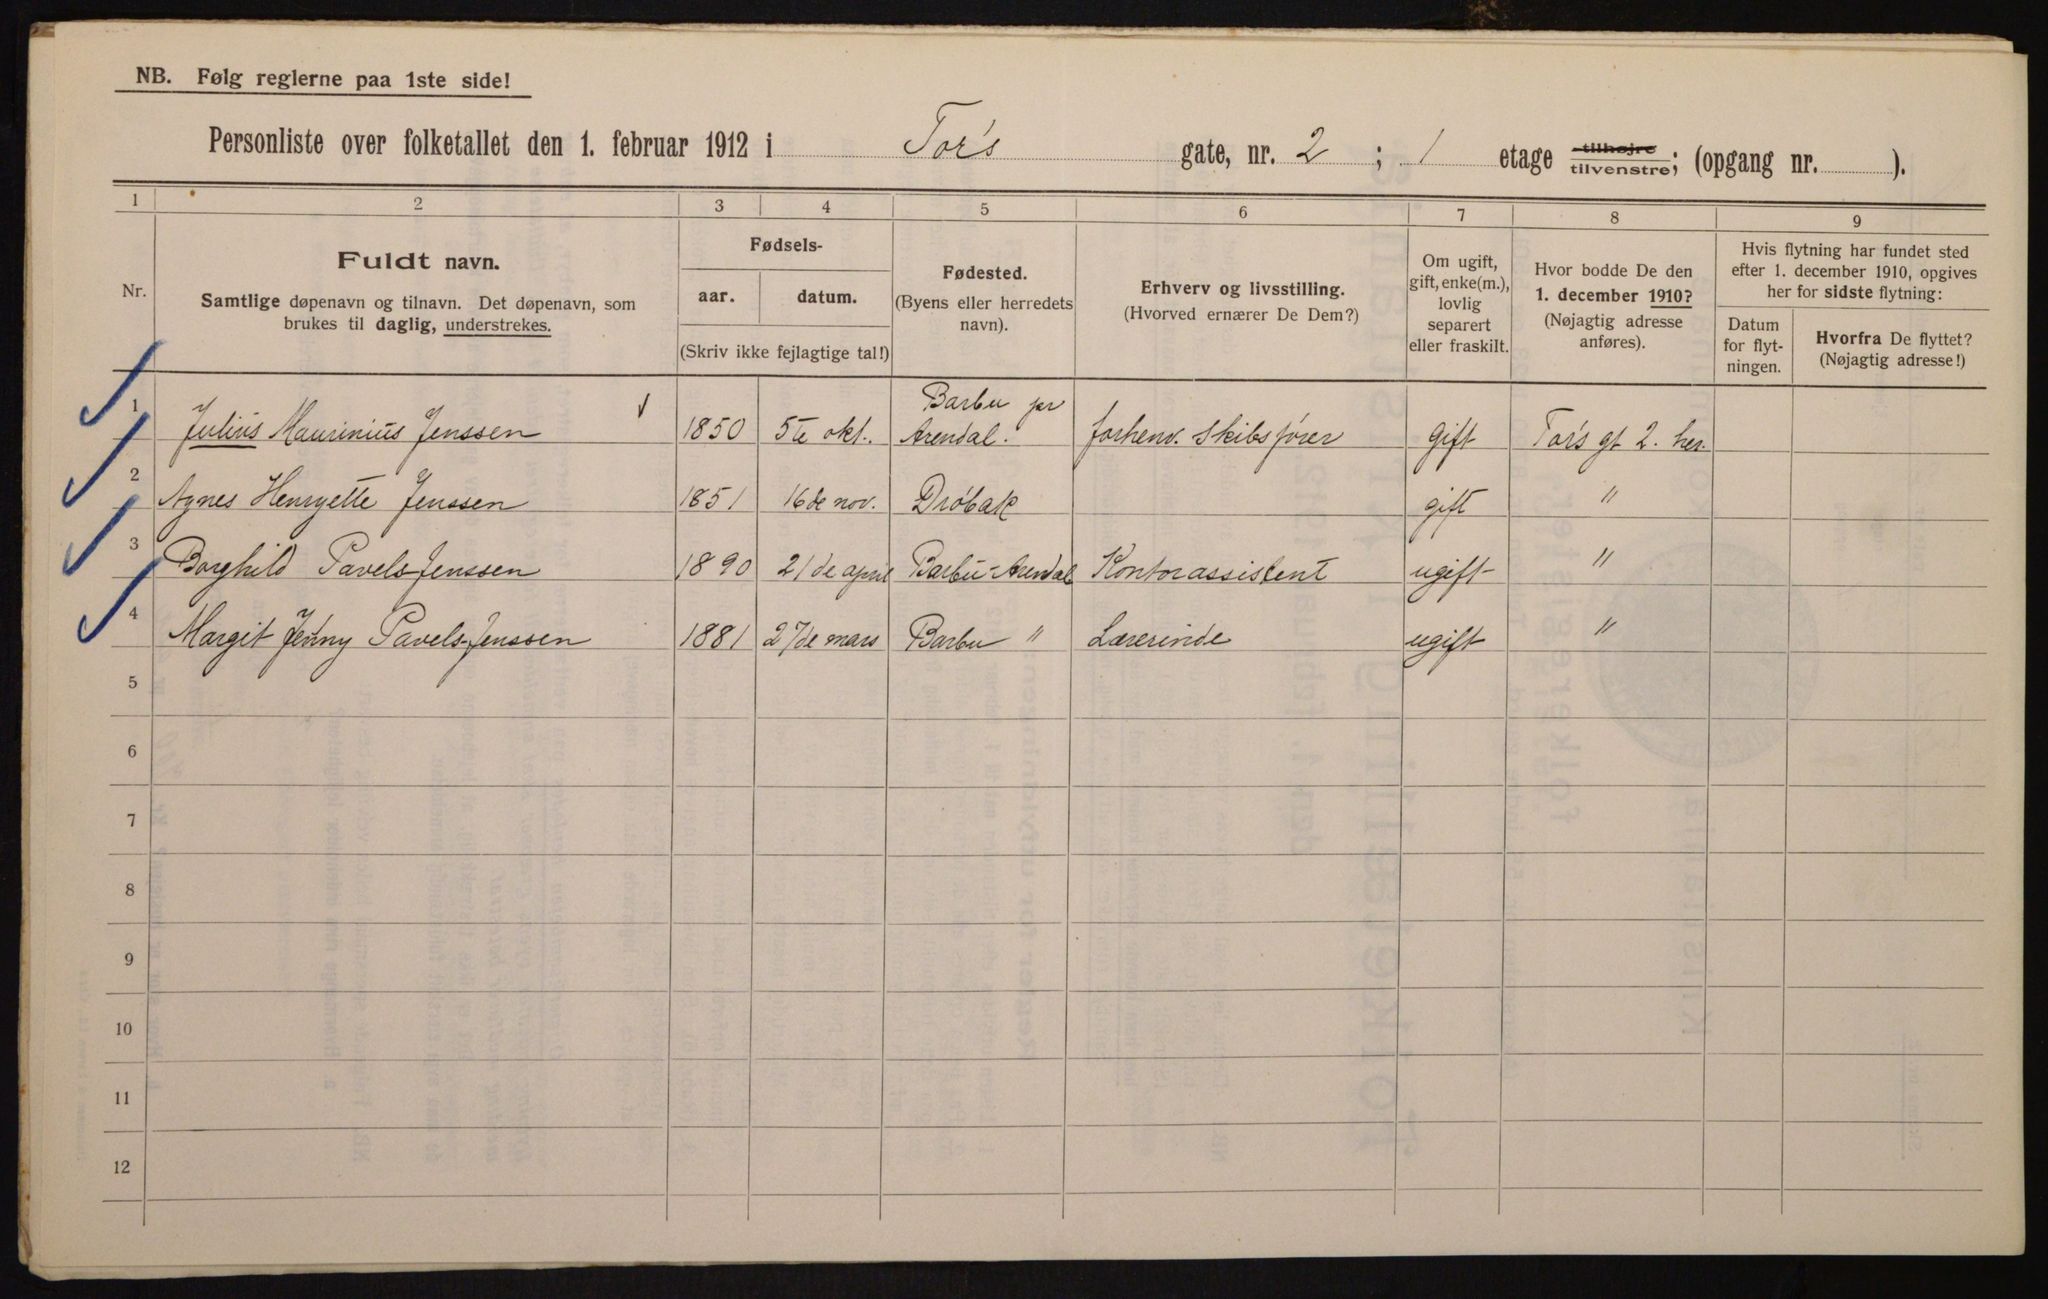 NB. Følg reglerne paa 1ste side!
Personliste over folketallet den 1. februar 1912 i Tor's gate, nr. 2 ; 1 etage tilhøjre tilvenstre; (opgang nr. ).
1 2 3 4 5 6 7 8 9
Nr.
Fuldt navn.
Samtlige døpenavn og tilnavn. Det døpenavn, som
brukes til daglig, understrekes.
Fødsels-
aar. datum.
(Skriv ikke fejlagtige tal!)
Fødested.
(Byens eller herredets
navn).
Erhverv og livsstilling.
(Hvorved ernærer De Dem?)
Om ugift,
gift, enke(m.),
lovlig
separert
eller fraskilt.
Hvor bodde De den
1. december 1910?
(Nøjagtig adresse
anføres).
Hvis flytning har fundet sted
efter 1. december 1910, opgives
her for sidste flytning:
Datum
for flyt-
ningen.
Hvorfra De flyttet?
(Nøjagtig adresse!)
1 Julius Maurinius Jenssen 1850 5te okt. Barbu pr Arendal. forhenv. Skibsfører gift Tor's gt 2. her.
2 Agnes Henryette Jenssen 1851 16de nov. Drøbak gift "
3 Borghild Pavels-Jenssen 1890 21de april Barbu-Arendal Kontorassistent ugift "
4 Margit Jenny Pavels-Jenssen 1881 27de mars Barbu " Lærerinde ugift "
5
6
7
8
9
10
11
12